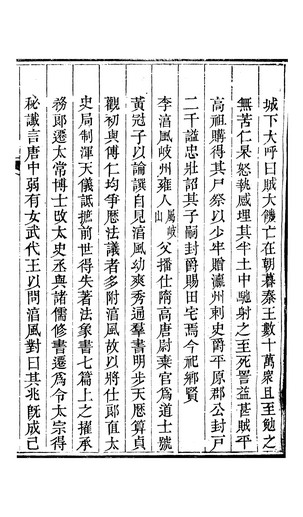 城下大呼曰賊大饑亡在朝暮秦王數十萬衆且至勉之
無苦仁杲怒執感埋其半土中馳射之至死詈益甚賊平
高祖購得其尸祭以少牢贈瀛州刺史爵平原郡公封戶
二千謚忠壯詔其子嗣封爵賜田宅焉今祀鄉賢
李淯風岐州雍人屬岐山父播仕隋高唐尉棄官為道士號
黃冠子以論譔自見淯風幼爽秀通羣書明步天歷算貞
觀初與傅仁均爭歷法議者多附淯風故以將仕郎直太
史局制渾天儀詆摭前世得失著法象書七篇上之擢承
務郎遷太常博士改太史丞與諸儒修書遷為令太宗得
秘讖言唐中弱有女武代王以問淯風對曰其兆旣成已